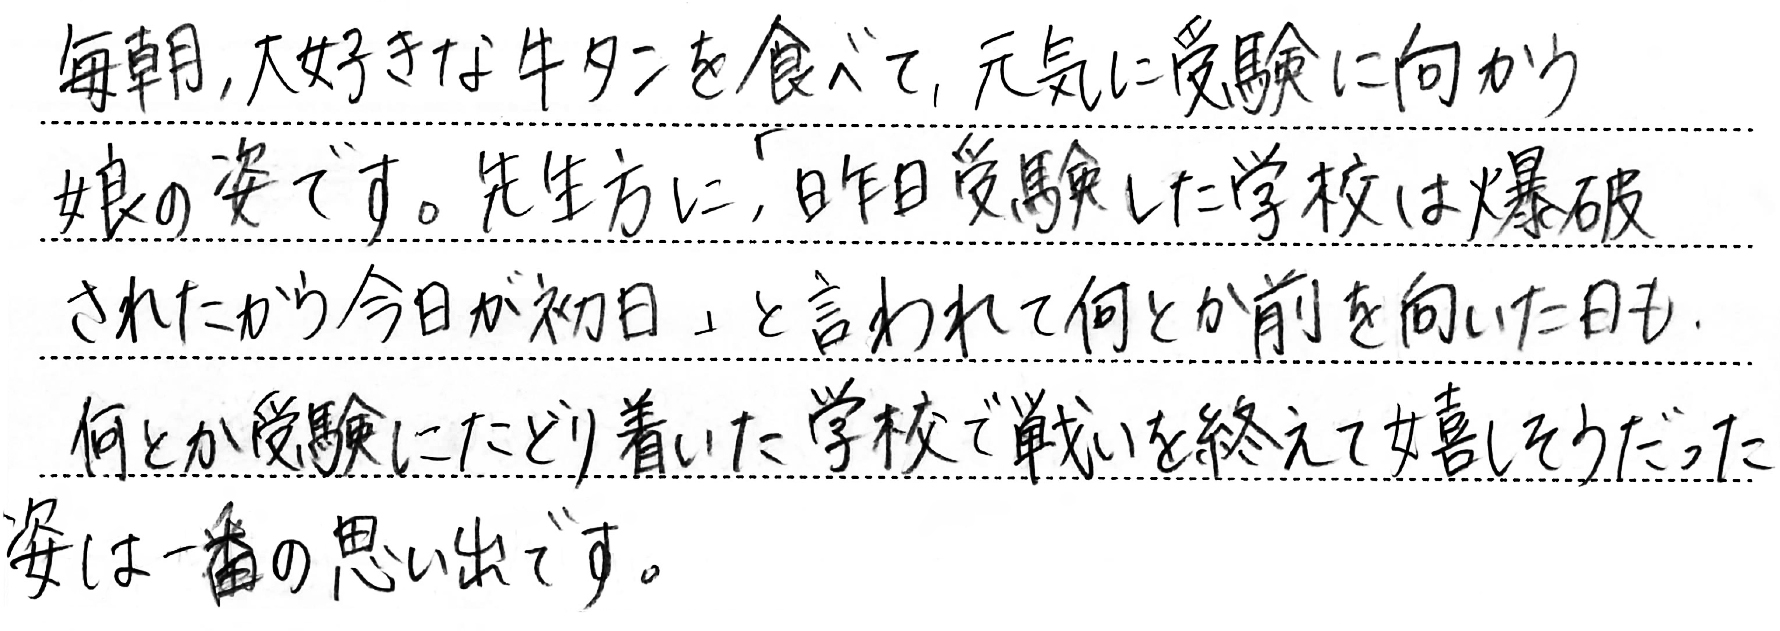 毎朝,大好きな牛タンを食べて,元気に受験に向かう
娘の姿です。先生方に,「昨日受験した学校は爆破
されたから今日が初日」と言われて何とか前を向いた日も.
何とか受験にたどり着いた学校で戦いを終えて嬉しそうだった
姿は一番の思い出です。